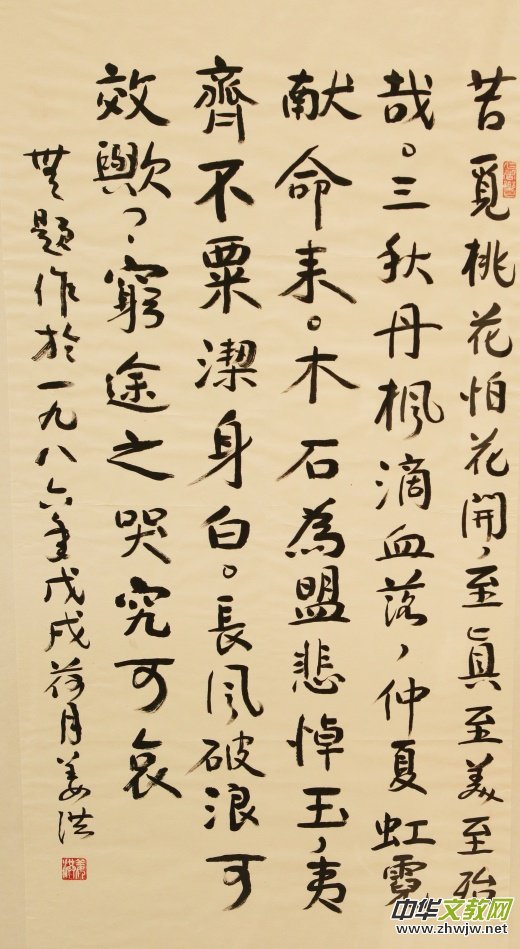 苦覓桃花怕花開，至真至美至殆
哉。三秋丹楓滴血落，仲夏虹霓
献命来。木石為盟悲悼玉，夷
齊不粟潔身白。長风破浪可
效歟？窮途之哭究可哀
無題作於一九八六年戊戌荷月姜洪
中华文教网
www.zhwjw.net